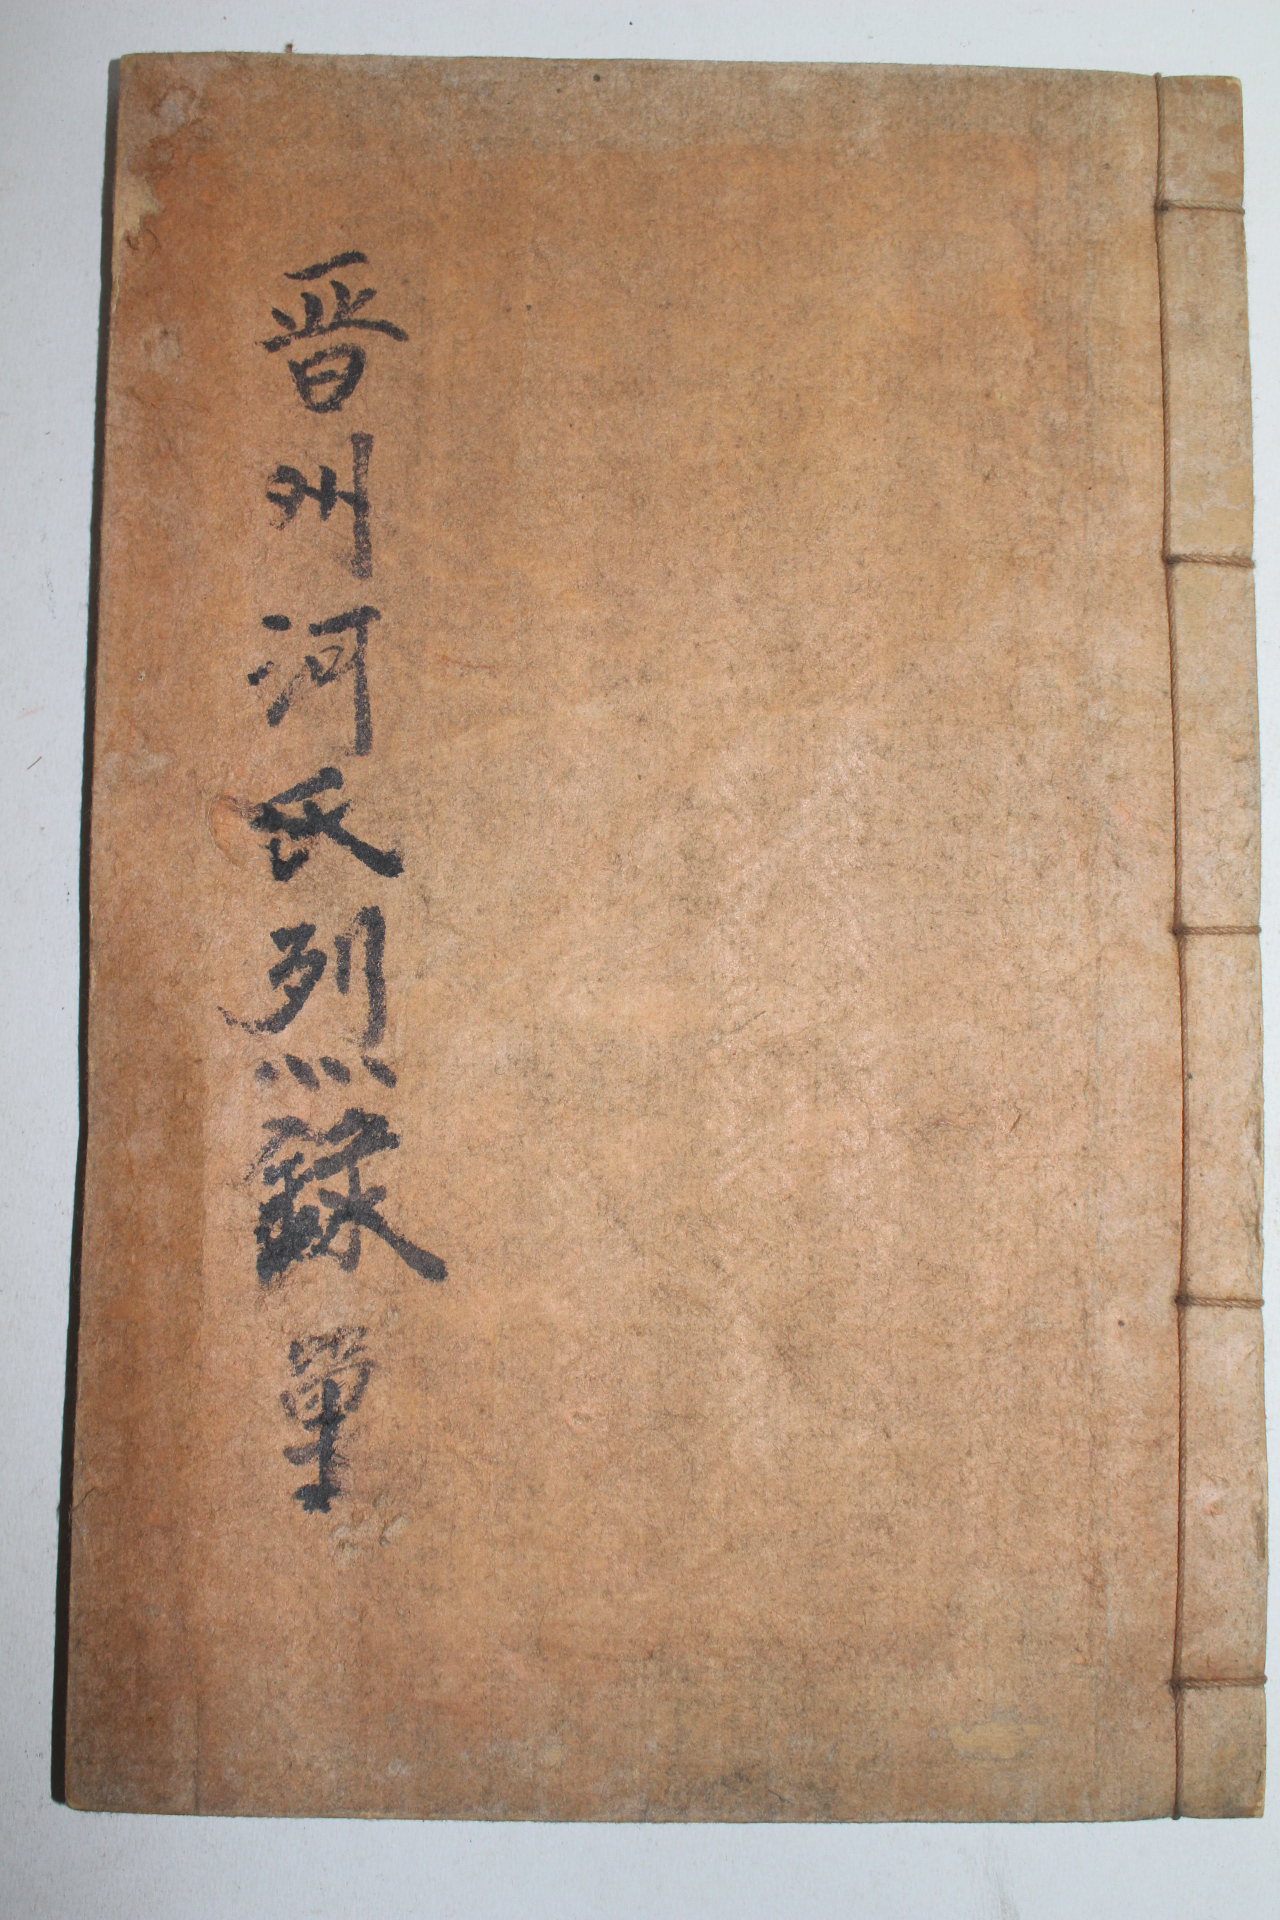 晋州河氏烈錄 單